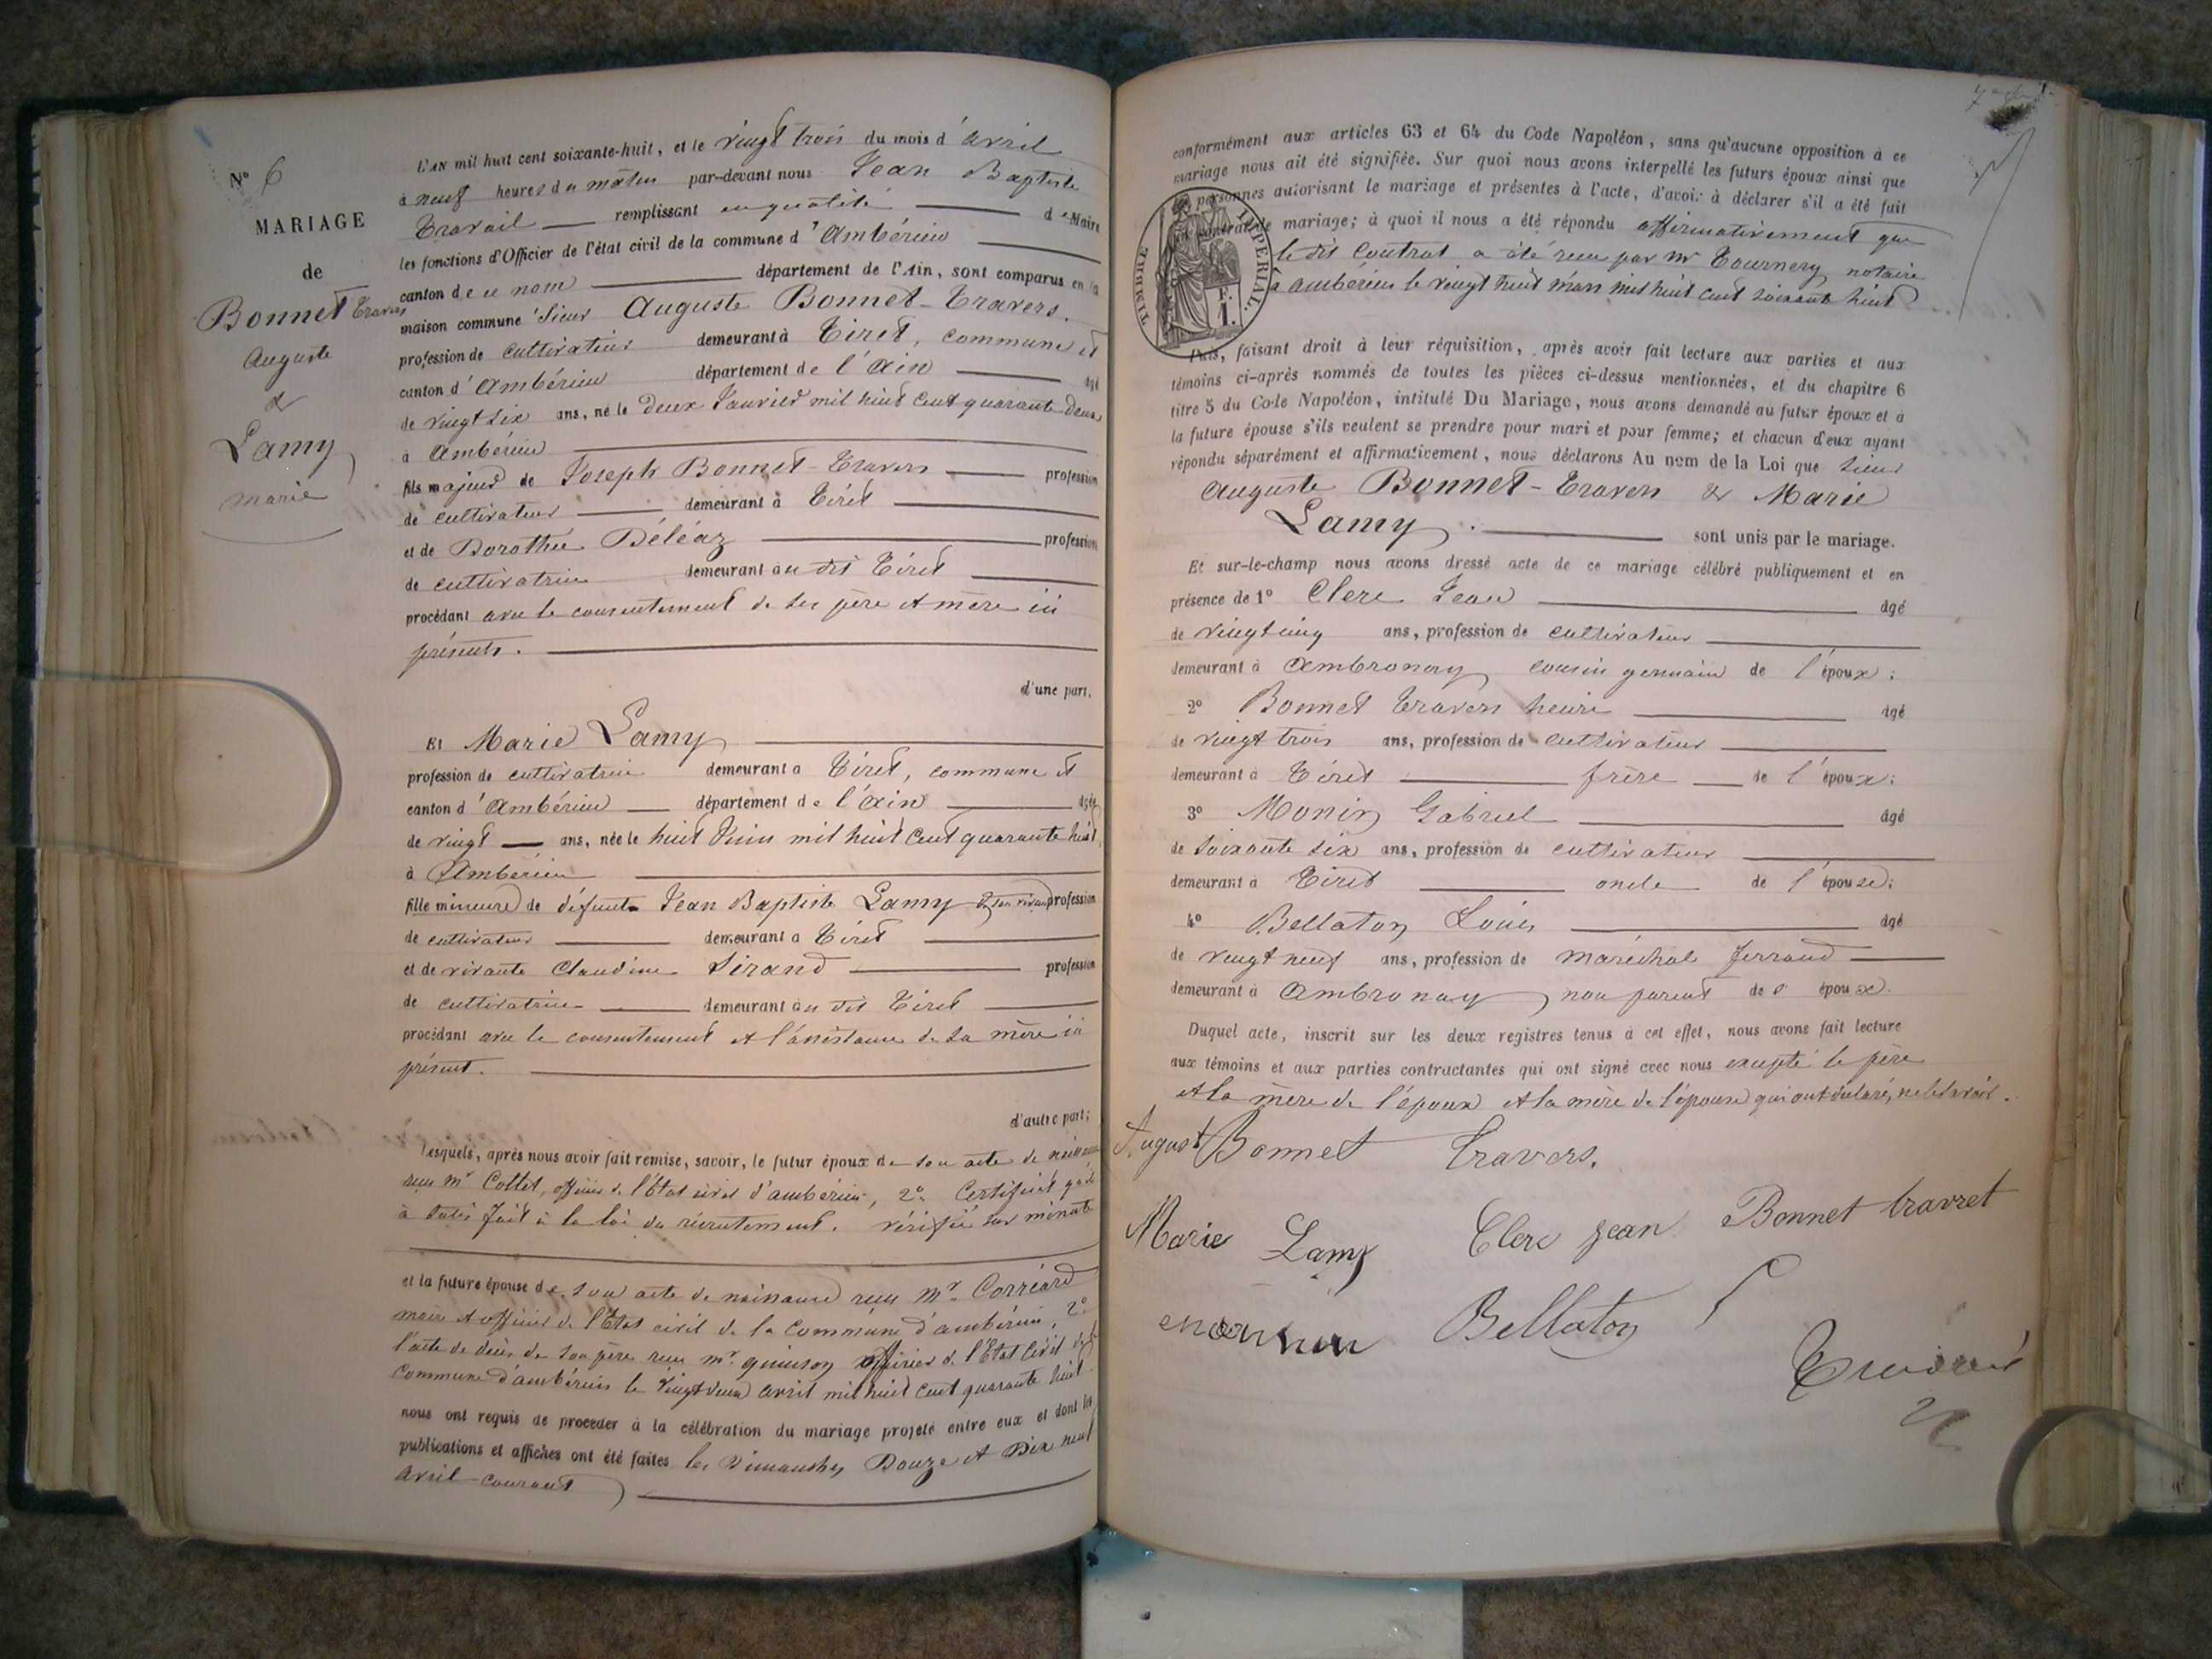 N° 6
MARIAGE
de
Bonnet Travers
Auguste
&
Lamy
marie
L'AN mil huit cent soixante-huit, et le vingt trois du mois d'avril
à neuf heures du matin par-devant nous Jean Baptiste
Travail remplissant en qualité de Maire
les fonctions d'Officier de l'état civil de la commune d'Ambérieu
canton de ce nom département de l'Ain, sont comparus en la
maison commune Sieur Auguste Bonnet-Travers.
profession de cultivateur demeurant à Tiret, commune et
canton d'Ambérieu département de l'Ain âgé
de vingt six ans, né le deux Janvier mil huit cent quarante deux
à Ambérieu
fils majeur de Joseph Bonnet-Travers profession
de cultivateur demeurant à Tiret
et de Dorothée Déléaz profession
de cultivatrice demeurant au dit Tiret
procédant avec le consentement de ses père et mère ici
présents.
d'une part,
Et Marie Lamy
profession de cultivatrice demeurant à Tiret, commune et
canton d'Ambérieu département de l'Ain âgée
de vingt ans, née le huit Juin mil huit cent quarante huit
à Ambérieu
fille mineure de défunt Jean Baptiste Lamy de son vivant profession
de cultivateur demeurant à Tiret
et de vivante Claudine Sirand profession
de cultivatrice demeurant au dit Tiret
procédant avec le consentement et l'assistance de sa mère ici
présent.
d'autre part;
Lesquels, après nous avoir fait remise, savoir, le futur époux de son acte de naissance
reçu Mr Collet, officier de l'État civil d'ambérieu, 2° Certificat qu'il
à satisfait à la loi du récrutement. vérifié sur minute
et la future épouse de son acte de naissance reçu Mr Corréard
maire et officier de l'État civil de la commune d'ambérieu, 2°
l'acte de décès de son père reçu Mr. quinson officier de l'État civil de la
commune d'ambérieu le vingt deux avril mil huit cent quarante huit
nous ont requis de procéder à la célébration du mariage projeté entre eux et dont les
publications et affiches ont été faites les Dimanches Douze et Dix neuf
avril courant
conformément aux articles 63 et 64 du Code Napoléon, sans qu'aucune opposition à ce
mariage nous ait été signifiée. Sur quoi nous avons interpellé les futurs époux ainsi que
les personnes autorisant le mariage et présentes à l'acte, d'avoir à déclarer s'il a été fait
contrat de mariage; à quoi il nous a été répondu affirmativement que
le dit contrat a été reçu par Mr Tournery notaire
à ambérieu le vingt huit mars mil huit cent soixante huit
TIMBRE IMPÉRIAL
1 F.
Puis, faisant droit à leur réquisition, après avoir fait lecture aux parties et aux
témoins ci-après nommés de toutes les pièces ci-dessus mentionnées, et du chapitre 6
titre 5 du Code Napoléon, intitulé Du Mariage, nous avons demandé au futur époux et à
la future épouse s'ils veulent se prendre pour mari et pour femme; et chacun d'eux ayant
répondu séparément et affirmativement, nous déclarons Au nom de la Loi que Sieur
Auguste Bonnet-Travers & Marie
Lamy. sont unis par le mariage.
Et sur-le-champ nous avons dressé acte de ce mariage célébré publiquement et en
présence de 1° Clerc Jean âgé
de vingt cinq ans, profession de cultivateur
demeurant à Ambronay cousin germain de l'époux;
2° Bonnet Travers henri âgé
de vingt trois ans, profession de cultivateur
demeurant à Tiret frère de l'époux;
3° Monin Gabriel âgé
de soixante six ans, profession de cultivateur
demeurant à Tiret oncle de l'épouse;
4° Bellaton Louis âgé
de vingt neuf ans, profession de maréchal ferrand
demeurant à Ambronay non parent de époux.
Duquel acte, inscrit sur les deux registres tenus à cet effet, nous avons fait lecture
aux témoins et aux parties contractantes qui ont signé avec nous excepté le père
et la mère de l'époux et la mère de l'épouse qui ont déclaré, ne le savoir.
August Bonnet Travers.
Marie Lamy Clerc jean Bonnet travret
Bellaton
Travail